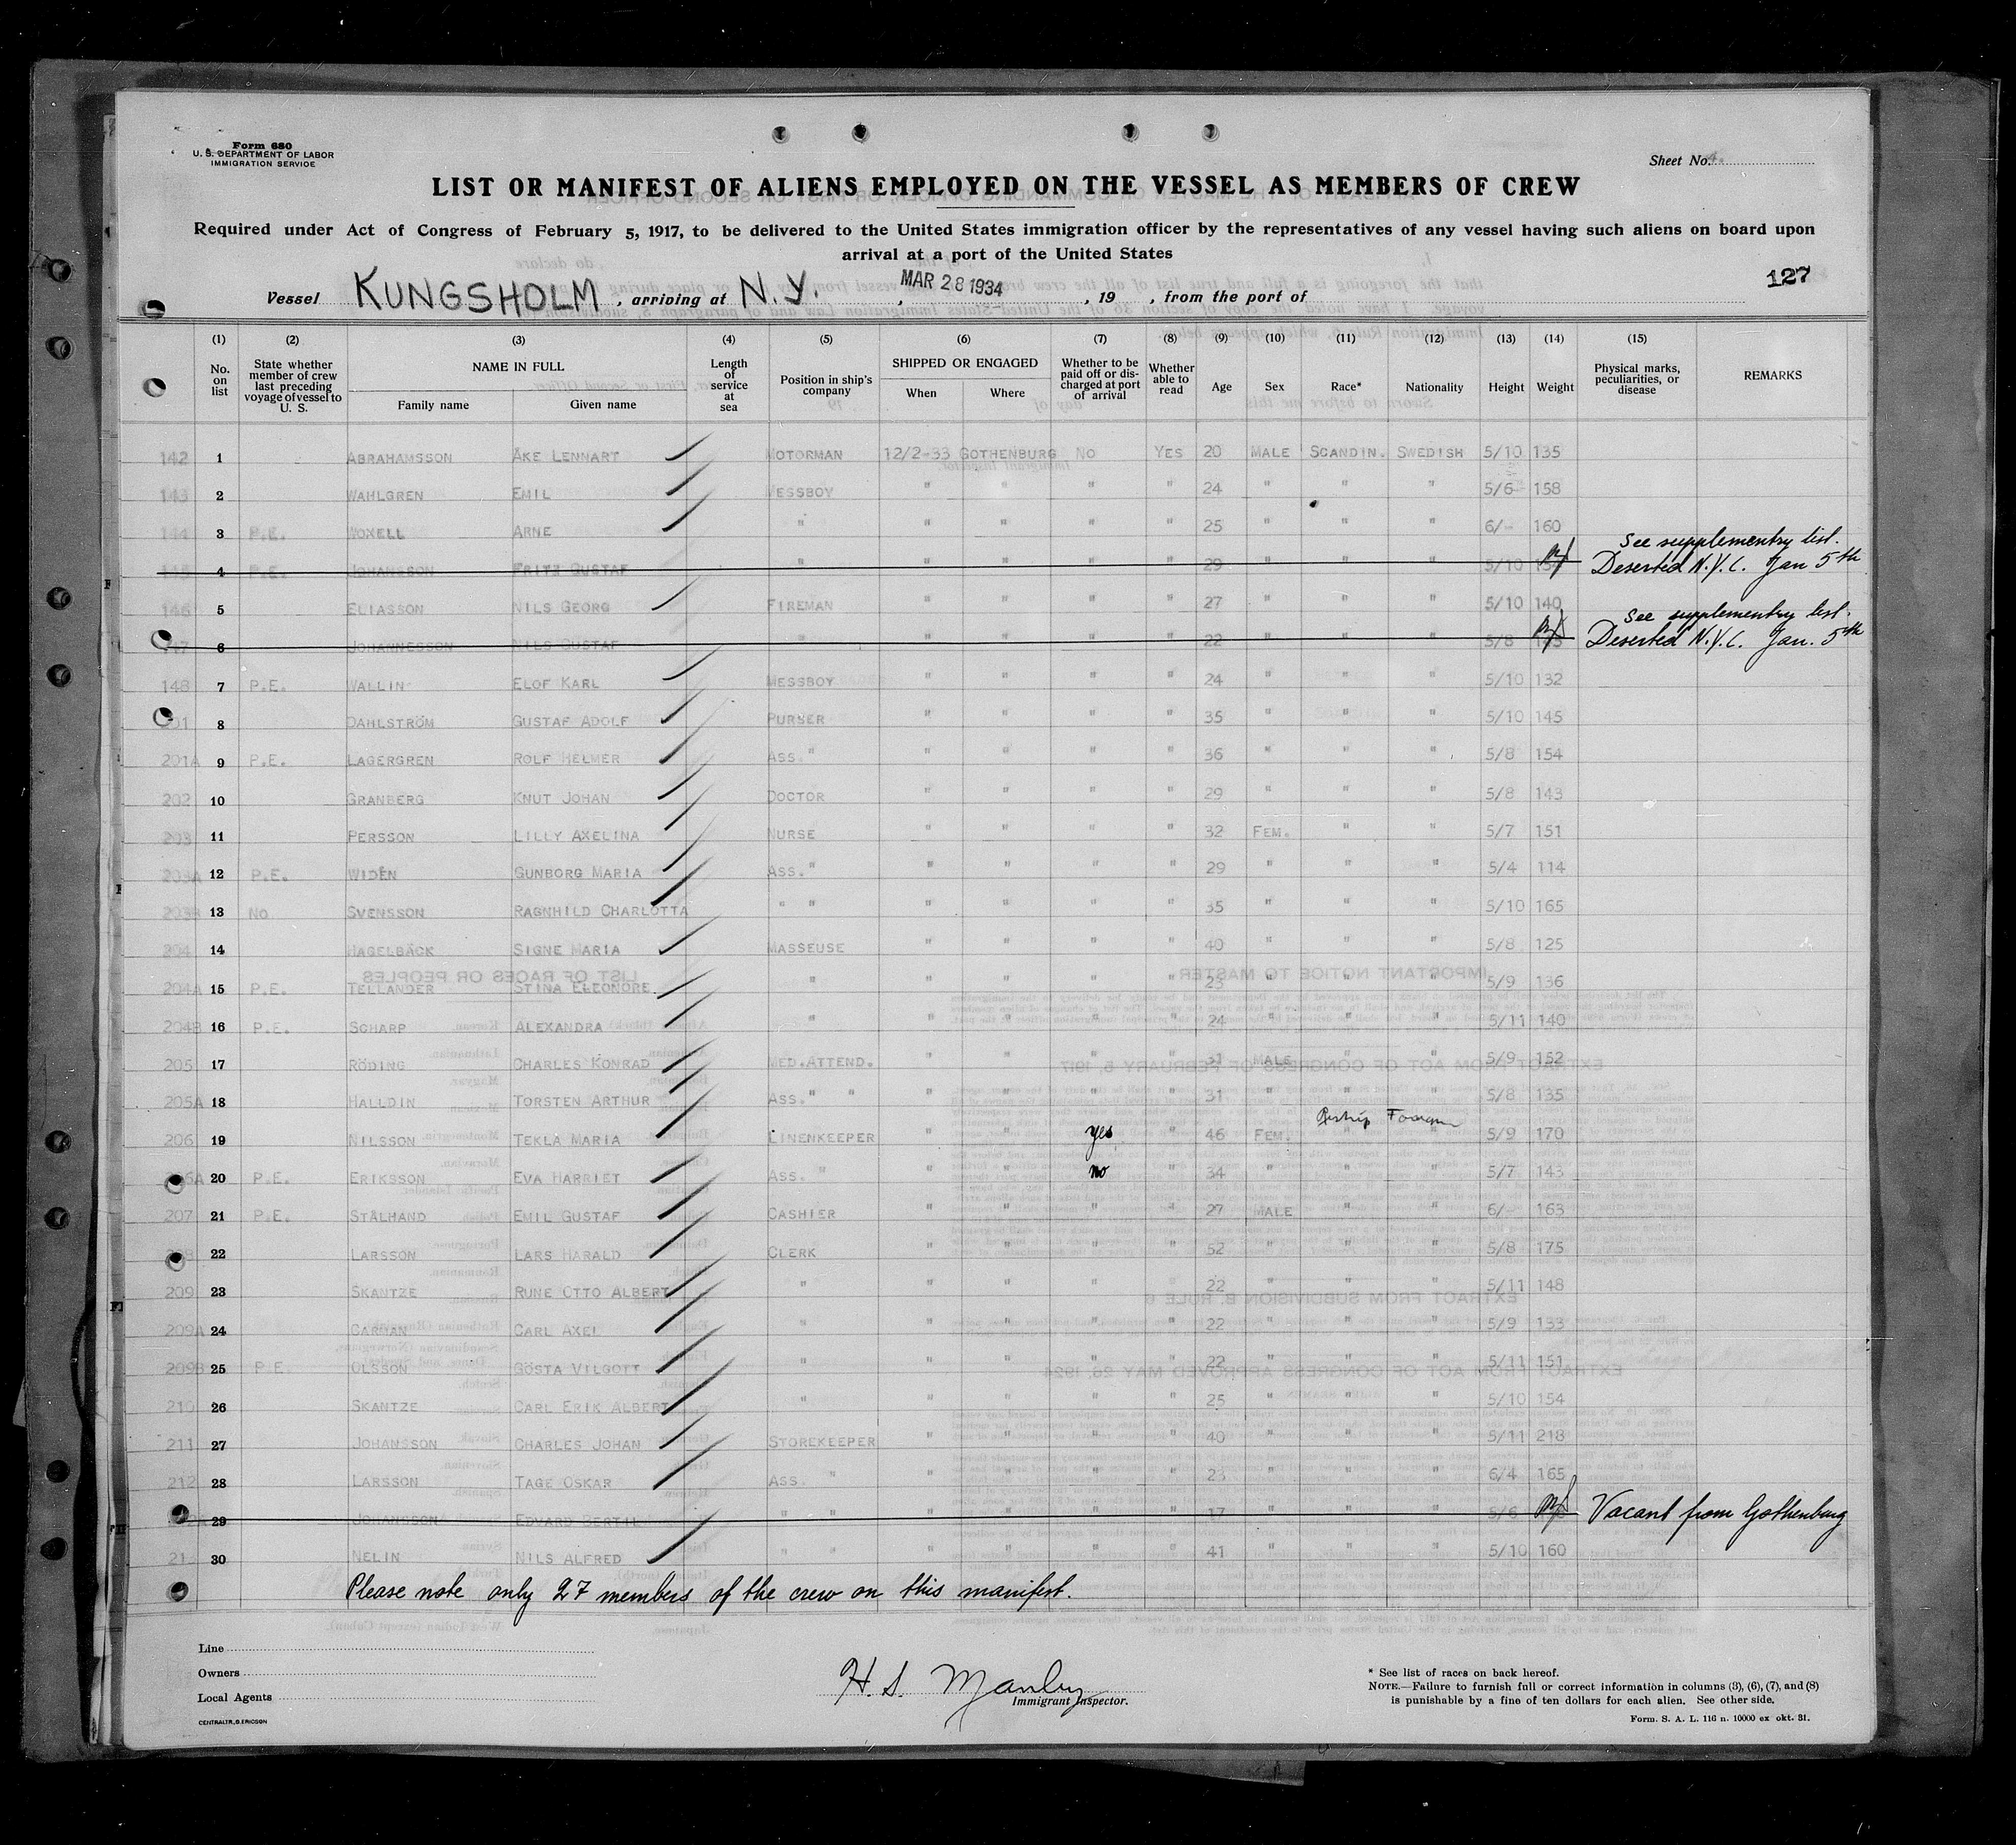 Form 680
U. S. DEPARTMENT OF LABOR
IMMIGRATION SERVICE
Sheet No. 4.
LIST OR MANIFEST OF ALIENS EMPLOYED ON THE VESSEL AS MEMBERS OF CREW
Required under Act of Congress of February 5, 1917, to be delivered to the United States immigration officer by the representatives of any vessel having such aliens on board upon
arrival at a port of the United States
127
Vessel KUNGSHOLM, arriving at N.Y., MAR 28 1934, 19 , from the port of
(1) (2) (3) (4) (5) (6) (7) (8) (9) (10) (11) (12) (13) (14) (15)
No. on list State whether member of crew last preceding voyage of vessel to U. S. NAME IN FULL Family name Given name Length of service at sea Position in ship's company SHIPPED OR ENGAGED When Where Whether to be paid off or discharged at port of arrival Whether able to read Age Sex Race* Nationality Height Weight Physical marks, peculiarities, or disease REMARKS
142 1 ABRAHAMSSON ÅKE LENNART MOTORMAN 12/2-33 GOTHENBURG NO YES 20 MALE SCANDIN. SWEDISH 5/10 135
143 2 WAHLGREN EMIL MESSBOY " " " " 24 " " " 5/6 158
144 3 P.E. WOXELL ARNE " " " " " 25 " " " 6/- 160
See supplementry list.
145 4 P.E. JOHANSSON FRITZ GUSTAF " " " " " 29 " " " 5/10 Deserted N.Y.C. Jan 5th
146 5 ELIASSON NILS GEORG FIREMAN " " " " 27 " " " 5/10 140
See supplementry list.
147 6 JOHANNESSON NILS GUSTAF " " " " " 22 " " " 5/8 Deserted N.Y.C. Jan. 5th
148 7 P.E. WALLIN ELOF KARL MESSBOY " " " " 24 " " " 5/10 132
8 DAHLSTRÖM GUSTAF ADOLF PURSER " " " " 35 " " " 5/10 145
201A 9 P.E. LAGERGREN ROLF HELMER ASS. " " " " " 36 " " " 5/8 154
202 10 GRANBERG KNUT JOHAN DOCTOR " " " " 29 " " " 5/8 143
203 11 PERSSON LILLY AXELINA NURSE " " " " 32 FEM. " " 5/7 151
203A 12 P.E. WIDÉN GUNBORG MARIA ASS. " " " " " 29 " " " 5/4 114
203B 13 NO SVENSSON RAGNHILD CHARLOTTA " " " " " " 35 " " " 5/10 165
204 14 HAGELBÄCK SIGNE MARIA MASSEUSE " " " " 40 " " " 5/8 125
204A 15 P.E. TELLANDER STINA ELEONORE " " " " " 23 " " " 5/9 136
204B 16 P.E. SCHARP ALEXANDRA " " " " " 24 " " " 5/11 140
205 17 RÖDING CHARLES KONRAD MED.ATTEND. " " " " 31 MALE " " 5/9 152
205A 18 HALLDIN TORSTEN ARTHUR ASS. " " " " " " 31 " " " 5/8 135
206 19 NILSSON TEKLA MARIA LINENKEEPER " " yes " 46 FEM. " " 5/9 170
20 P.E. ERIKSSON EVA HARRIET ASS. " " " no " 34 " " " 5/7 143
207 21 P.E. STÅLHAND EMIL GUSTAF CASHIER " " " " 27 MALE " " 6/- 163
22 LARSSON LARS HARALD CLERK " " " " 52 " " " 5/8 175
209 23 SKANTZE RUNE OTTO ALBERT " " " " " 22 " " " 5/11 148
209A 24 CARMAN CARL AXEL " " " " " 22 " " " 5/9 133
209B 25 P.E. OLSSON GÖSTA VILGOTT " " " " " 22 " " " 5/11 151
210 26 SKANTZE CARL ERIK ALBERT " " " " " 25 " " " 5/10 154
211 27 JOHANSSON CHARLES JOHAN STOREKEEPER " " " " 40 " " " 5/11 218
212 28 LARSSON TAGE OSKAR ASS. " " " " " 23 " " " 6/4 165
29 JOHANSSON EDVARD BERTIL " " " " " " 17 " " " 5/6 Vacant from Gothenburg
30 NELIN NILS ALFRED " " " " " " 41 " " " 5/10 160
Please note only 27 members of the crew on this manifest.
Line
Owners
Local Agents
CENTRALTR., G. ERICSON
H. S. Manley
Immigrant Inspector.
* See list of races on back hereof.
NOTE.—Failure to furnish full or correct information in columns (3), (6), (7), and (8)
is punishable by a fine of ten dollars for each alien. See other side.
Form. S. A. L. 116 n. 10000 ex okt. 31.